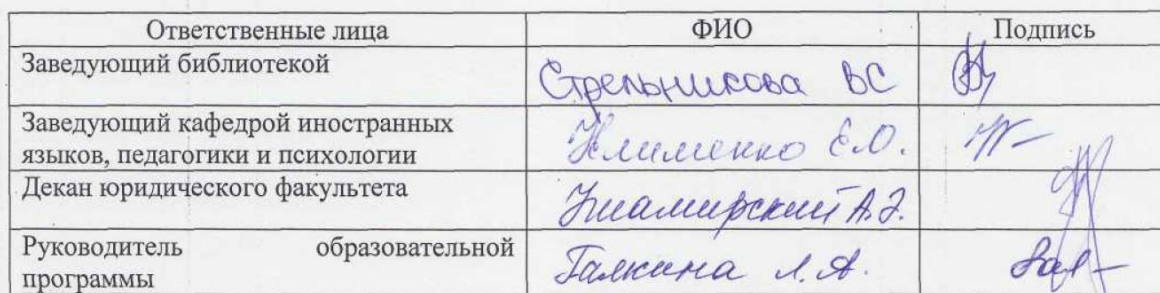 Ответственные лица ФИО Подпись
Заведующий библиотекой Стрельникова ВС
Заведующий кафедрой иностранных
языков, педагогики и психологии Клименко Е.О.
Декан юридического факультета А.Э.
Руководитель образовательной
программы Галкина Л.А.